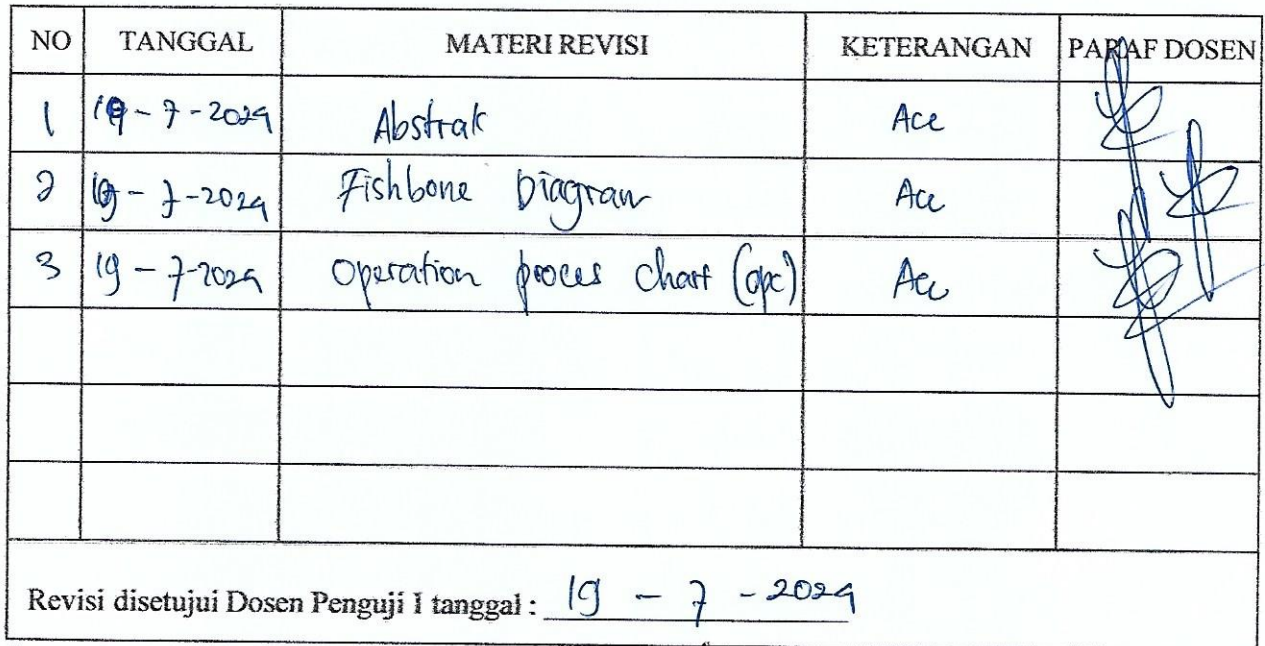 NO TANGGAL MATERI REVISI KETERANGAN PARAF DOSEN
1 19 - 7 - 2024 Abstrak Acc
2 19 - 7 - 2024 Fishbone Diagram Acc
3 19 - 7 - 2024 Operation proces chart (opc) Acc
Revisi disetujui Dosen Penguji I tanggal : 19 - 7 - 2024